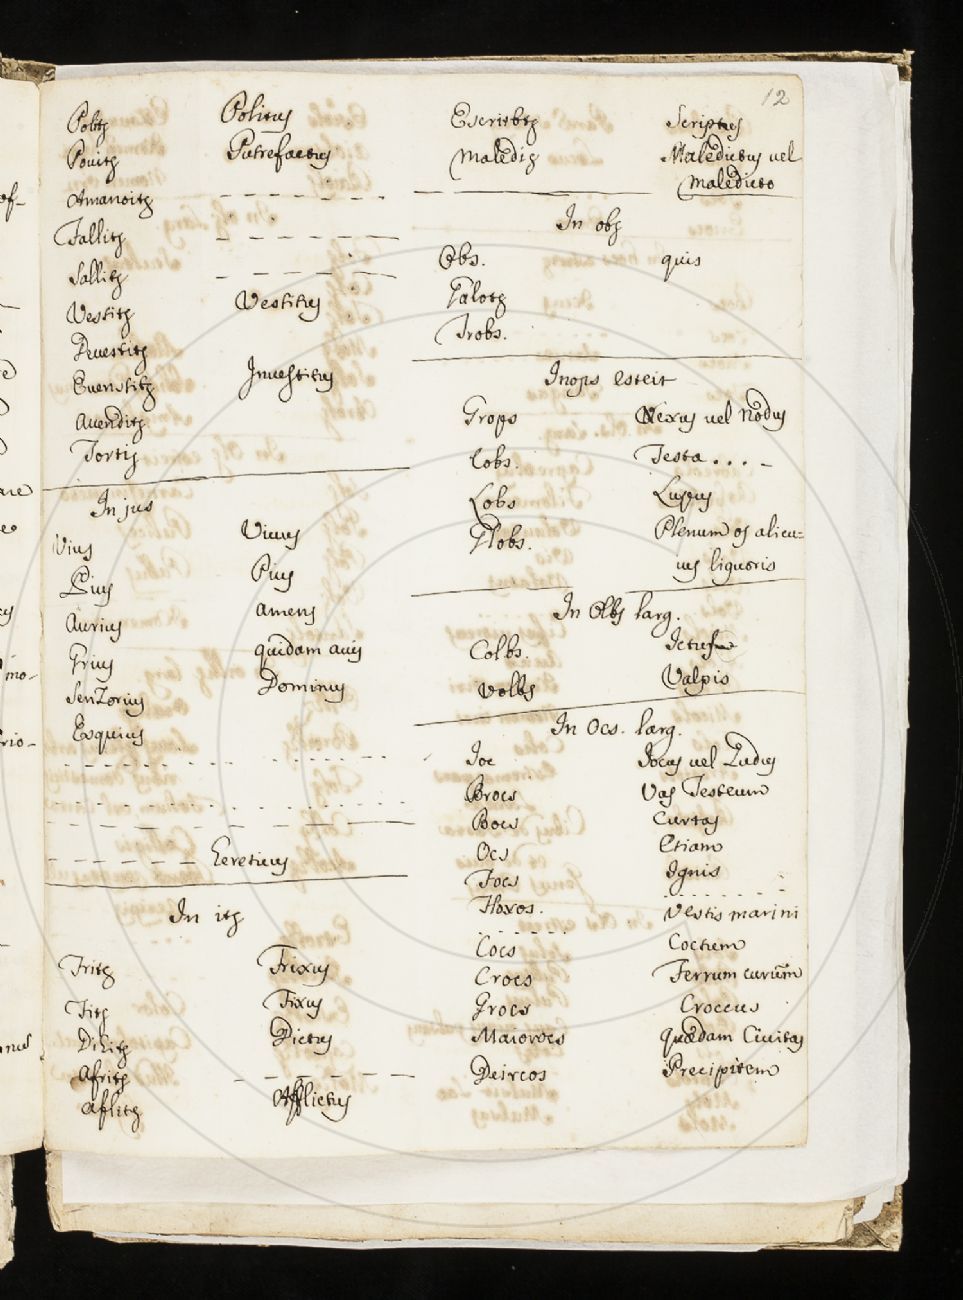 12
Politz Politus
Pouitz Putrefactus
Amanoitz
Fallitz
Sallitz
Vestitz Vestitus
Deuestitz
Euenstitz Inuestitus
Auenditz
Tortiz
In jus
Vius Viuus
Pius Pius
Aurius Amens
Grius quidam auis
Senzorius Dominus
Esquius
Ereticus
In itz
Fritz Frixus
Fitz Fixus
Ditz Dictus
Afritz
Aflitz Afflictus
Escriubtz Scriptus
Malediz Maledictus uel
maledicto
In obz
Obs. quis
Galobz
Trobs.
Inops estreit
Grops Nexus uel nodus
Cobs. Testa . . . -
Lobs Lupus
Globs. Plenum os alicu=
ius liquoris
In Olbs larg.
Colbs. Ictus
Volbs Vulpis
In Ocs. larg.
Joc Jocus uel Ludus
Brocs Vas Testeum
Bocs Curtas
Ocs Etiam
Focs Ignis
Flocs. Vestis marini
Cocs Coctum
Crocs Ferrum curuum
Grocs Croceus
Maiorocs quædam Ciuitas
Deircos Precipitem